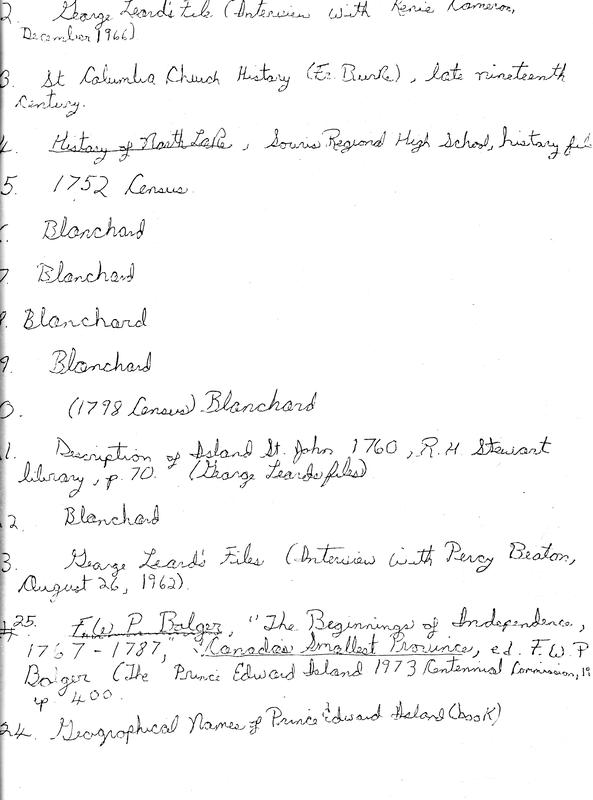 2. George Leard's File (Interview with Renie Cameron,
December 1966)
3. St Columba Church History (Fr. Burke), late nineteenth
century.
4. History of North Lake, Souris Regional High School, history file
5. 1752 Census
6. Blanchard
7. Blanchard
8. Blanchard
9. Blanchard
0. (1798 Census) Blanchard
1. Description of Island St. John 1760, R.H Stewart
library, p. 70. (George Leards files)
2. Blanchard
3. George Leard's Files (Interview with Percy Beaton,
August 26, 1962).
#25. F.W P Bolger, "The Beginnings of Independence,
1767-1787," "Canada's Smallest Province, ed. F.W.P
Bolger (The Prince Edward Island 1973 Centennial Commission, 19
p. 400.
24. Geographical Names of Prince Edward Island (book)